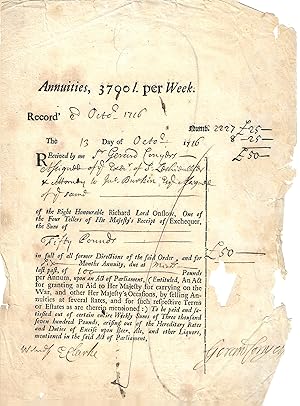 Annuities, 3790 l. per Week.
Record d Octo 1716
Numb. 2227 £ 25—
8 — 25—
£ 50—
The 13 Day of Octo 1716
Received by me Sr Gerard Conyers
Assignee of ye Exec of S.
& Attorney to
of ye same
of the Right Honourable Richard Lord Onslow, One of
the Four Tellers of His Majesty's Receipt of Exchequer,
the Sum of
Fifty Pounds
£ 50—
in full of all former Directions of the said Order, and for
Six Months Annuity, due at
last past, of 100 Pounds
per Annum, upon an Act of Parliament, (Entituled, An Act
for granting an Aid to Her Majesty for carrying on the
War, and other Her Majesty's Occasions, by selling Annui-
ties at several Rates, and for such respective Terms
or Estates as are therein mentioned:) To be paid and sa-
tisfied out of certain entire Weekly Sums of Three thousand
seven hundred Pounds, arising out of the Hereditary Rates
and Duties of Excise upon Beer, Ale, and other Liquors,
mentioned in the said Act of Parliament.
Clarke
Gerard Conyers